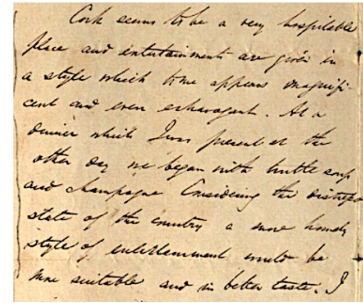 Cork seems to be a very hospitable
place and entertainments are given in
a style which to me appears magnifi-
cent and even extravagant. At a
dinner which I was present at the
other day we began with turtle soup
and champagne Considering the distressed
state of the country a more homely
style of entertainment would be
more suitable and in better taste. I